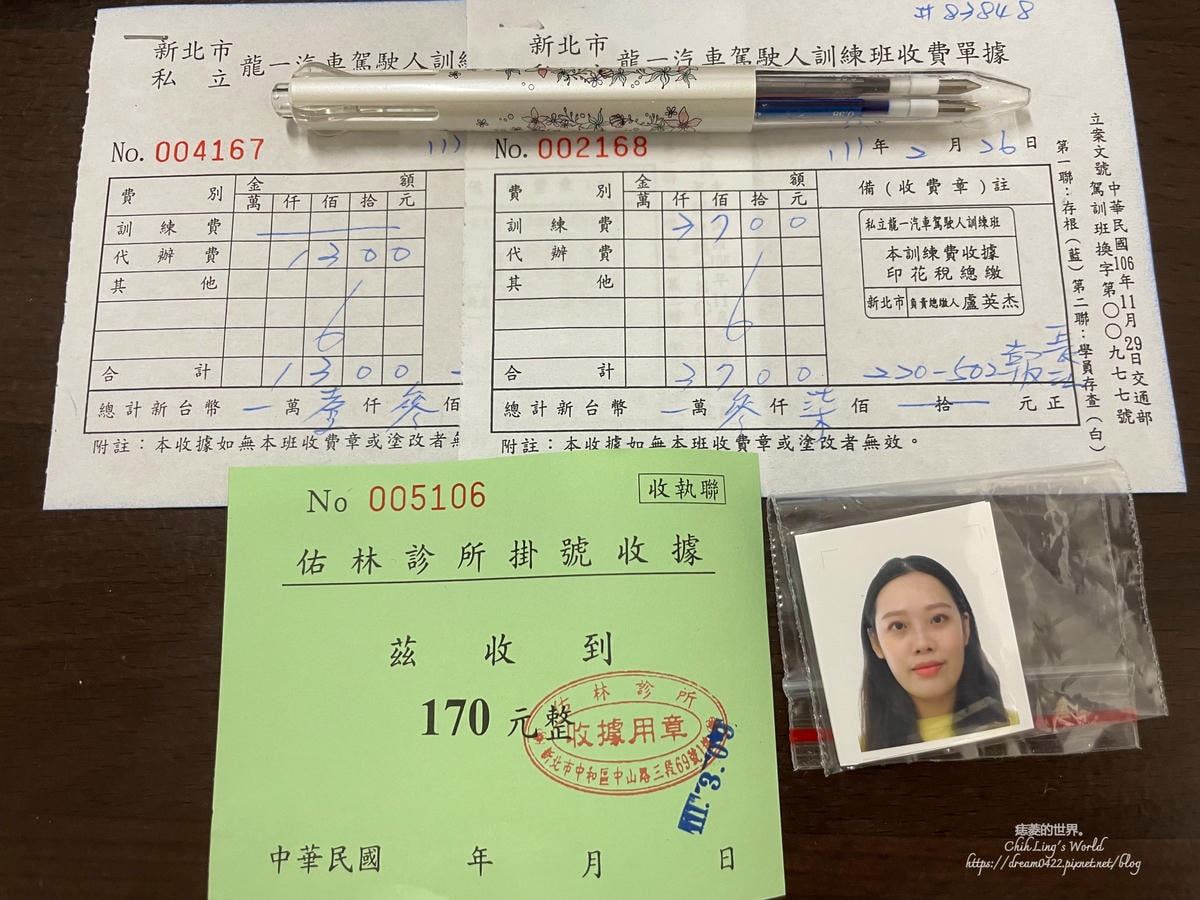 新北市
私 立
龍一汽車駕駛人訓
No. 004167
費 別
金 額
萬 仟 佰 拾 元
訓練費
代辦費 1 3 0 0
其 他
合 計 1 3 0 0
總計新台幣 一 萬 壹 仟 參 佰
附註：本收據如無本班收費章或塗改者無
#83848
新北市
龍一汽車駕駛人訓練班收費單據
No. 002168
111 年 2 月 26 日
費 別
金 額
萬 仟 佰 拾 元
備（收費章）註
訓練費 3 7 0 0
代辦費
其 他
合 計 3 7 0 0
總計新台幣 一 萬 參 仟 柒 佰 拾 元正
附註：本收據如無本班收費章或塗改者無效。
私立龍一汽車駕駛人訓練班
本訓練費收據
印花稅總繳
新北市 負責總繳人 盧英杰
230-502
第一聯：存根（藍）第二聯：學員存查（白）
立案文號
中華民國106年11月29日交通部
駕訓班換字第〇〇九七七號
No 005106
收執聯
佑林診所掛號收據
茲 收 到
170 元整
佑林診所
收據用章
新北市中和區中山路三段69號1樓
111. 3. 09
中華民國 年 月 日
0.38
痣菱的世界。
ChihLing's World
https://dream0422.pixnet.net/blog